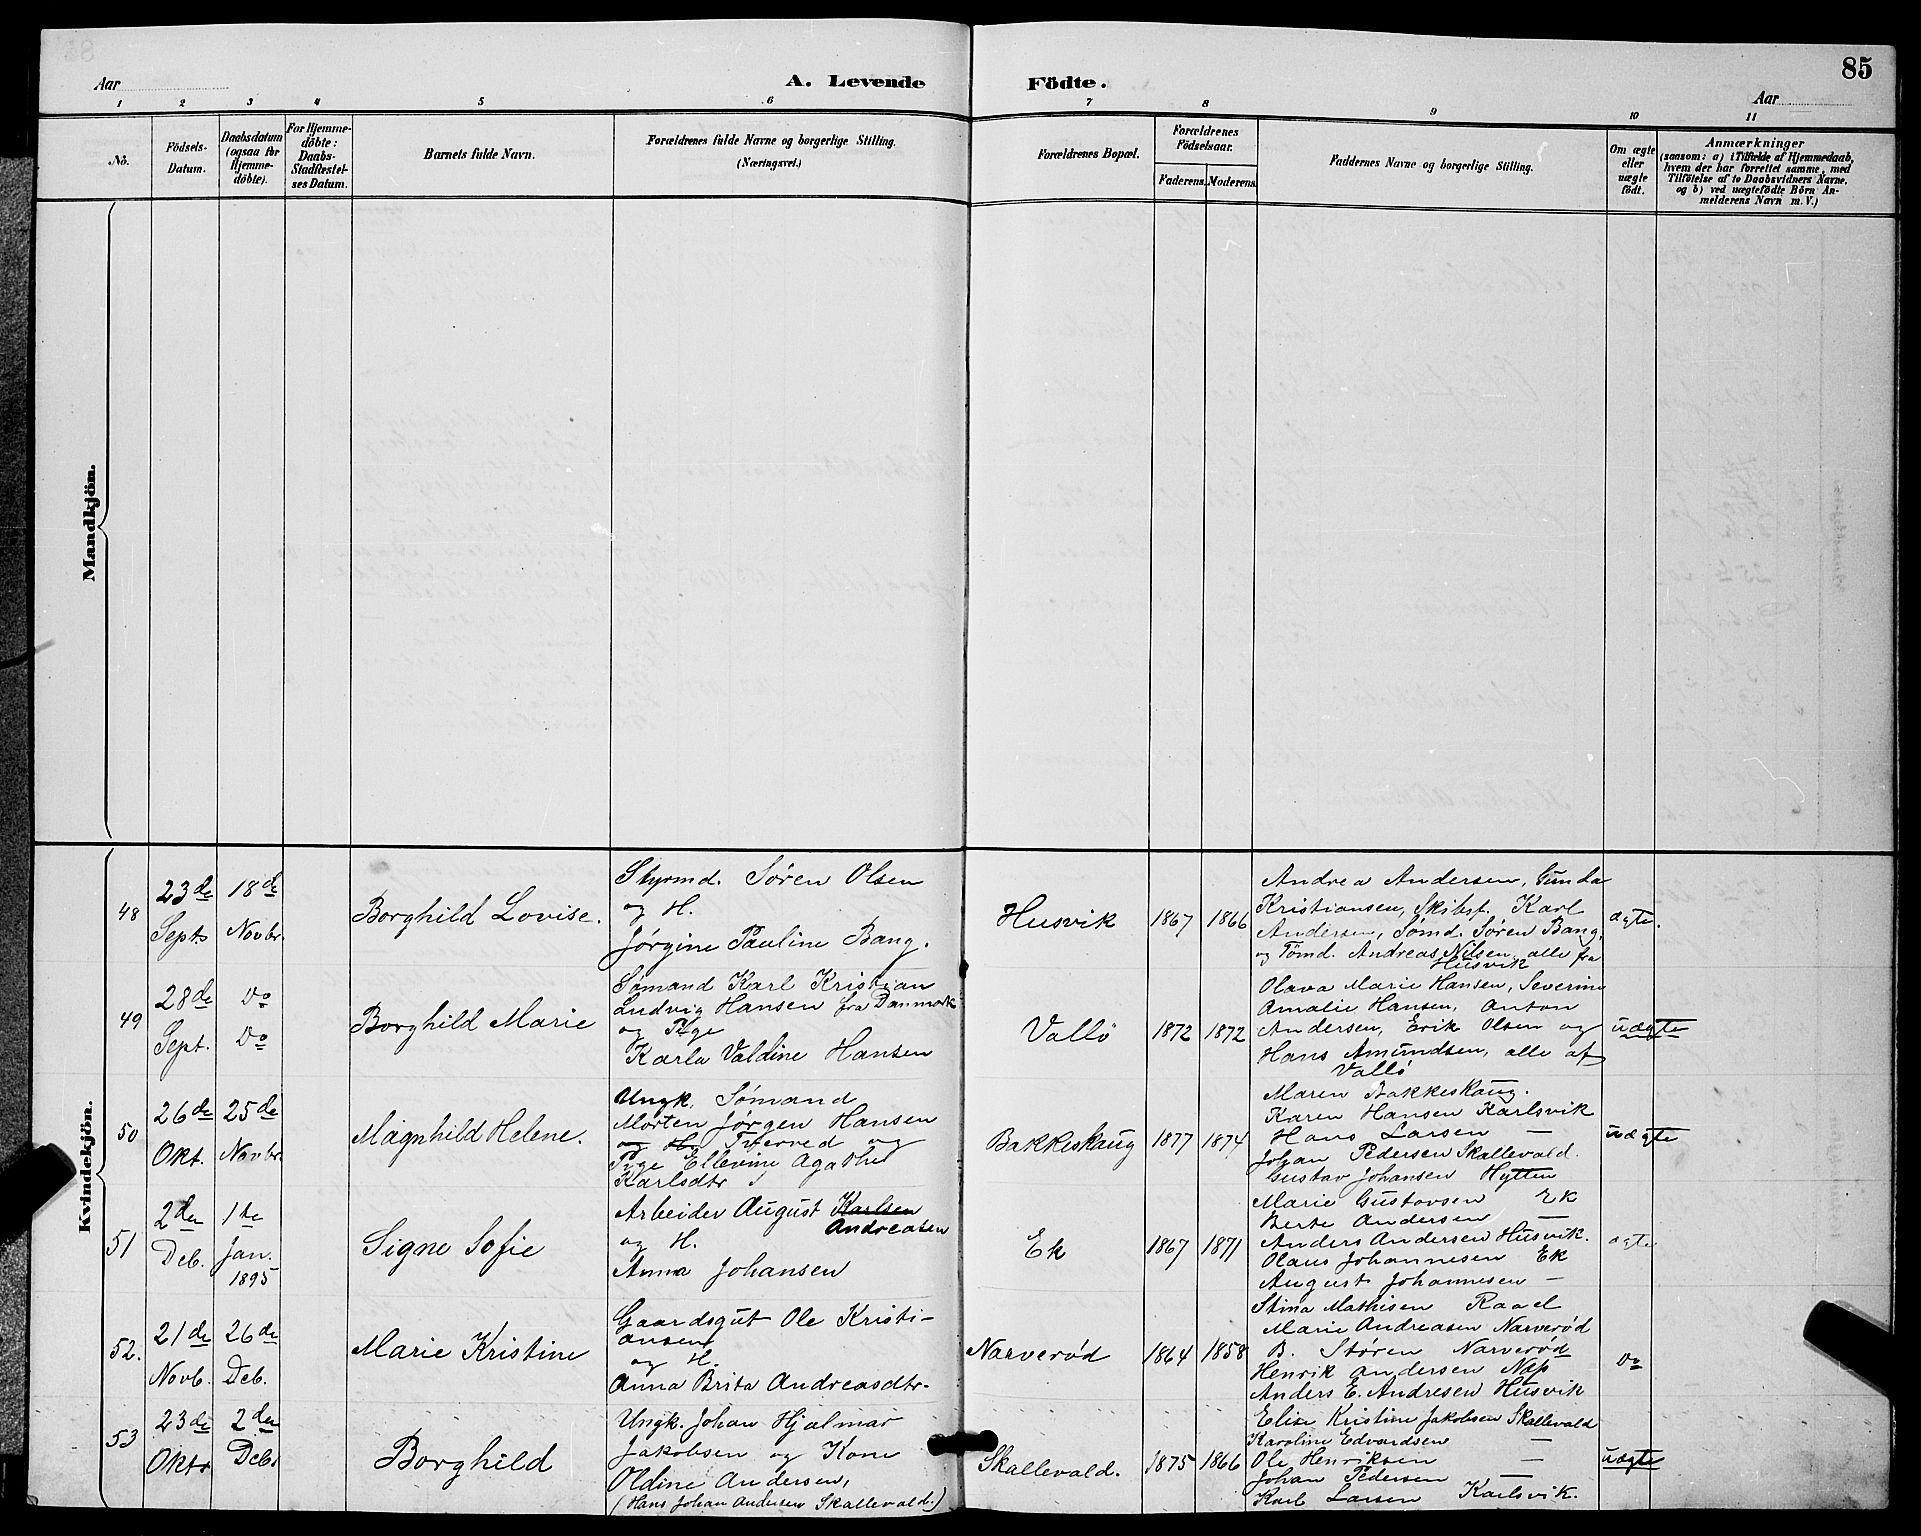 85
Aar
A. Levende Födte.
Aar
1 2 3 4 5 6 7 8 9 10 11
No.
Födsels-
Datum.
Daabsdatum
(ogsaa for
Hjemme-
döbte).
For Hjemme-
döbte:
Daabs-
Stadfæstel-
ses Datum.
Barnets fulde Navn.
Forældrenes fulde Navne og borgerlige Stilling.
(Næringsvei.)
Forældrenes Bopæl.
Forældrenes
Födselsaar.
Faderens. Moderens.
Faddernes Navne og borgerlige Stilling.
Om ægte
eller
uægte
födt.
Anmærkninger
(saasom: a) i Tilfælde af Hjemmedaab,
hvem der har forrettet samme, med
Tilföielse af to Daabsvidners Navne.
og b) ved uægtefödte Börn An-
melderens Navn m. V.)
Mandkjön.
Kvindekjön.
48
23de
Septr
18de
Novbr.
Borghild Lovise.
Styrmd. Søren Olsen
og H.
Jørgine Pauline Bang.
Husvik
1867
1866
Andrea Andersen, Gunda
Kristiansen, Skibsf. Karl
Andersen, Sømd. Søren Bang,
og Tømd. Andreas Nilsen, alle fra
Husvik
ægte.
49
28de
Sept.
Do
Do
Borghild Marie
Sømand Karl Kristian
Ludvig Hansen fra Danmark
og Pge
Karla Valdine Hansen
Vallø
1872
1872
Olava Marie Hansen, Severine
Amalie Hansen, Anton
Andersen, Erik Olsen og
Hans Amundsen, alle af
Vallø
uægte
50
26de
Okt.
25de
Novbr.
Magnhild Helene.
Ungk. Sømand
Morten Jørgen Hansen
og H. Tverved og
Pige Ellevine Agathe
Karlsdtr
Bakkeskaug
1877
1874
Maren Bakkeskaug.
Karen Hansen Karlsvik
Hans Larsen —
Johan Pedersen Skallevald.
Gustav Johansen Hytten
uægte
51
2den
Deb.
1ste
Jan.
1895
Signe Sofie
Arbeider August Karlsen
Andreasen
og H.
Anna Johansen
Ek
1867
1871
Marie Gustavsen Ek
Berte Andersen —
Anders Andersen Husvik.
Olaus Johannesen Ek
August Johannesen —
ægte
52.
21de
Novb.
26de
Deb.
Marie Kristine
Gaardsgut Ole Kristi-
ansen
og H.
Anna Brita Andreasdtr.
Narverød
1864
1858
Stina Mathisen Raael
Marie Andreasen Narverød
B. Støren Narverød
Henrik Andersen Nap
Anders E. Andresen Husvik
Do
53
23de
Oktr
2den
Debr
Borghild
Ungk. Johan Hjalmar
Jakobsen og Kone
Oldine Andersen,
(Hans Johan Andersen Skallevald.)
Skallevald.
1875
1866
Elise Kristine Jakobsen Skallevald
Karoline Edvardsen —
Ole Henriksen —
Johan Pedersen —
Karl Larsen Karlsvik.
uægte